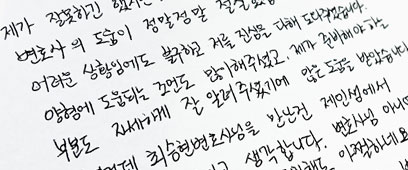 제가 잘못하긴 했지만
변호사의 도움이 정말정말 절실했
어려운 상황임에도 불구하고 저를 진심을 다해 도와주셨습니다.
양형에 도움되는 조언도 많이해주셨고, 제가 준비해야 하는
부분도 자세하게 잘 알려주셨기에 많은 도움을 받았습니다
최승현변호사님을 만난건 제인생에서
생각합니다. 변호사님 아니었